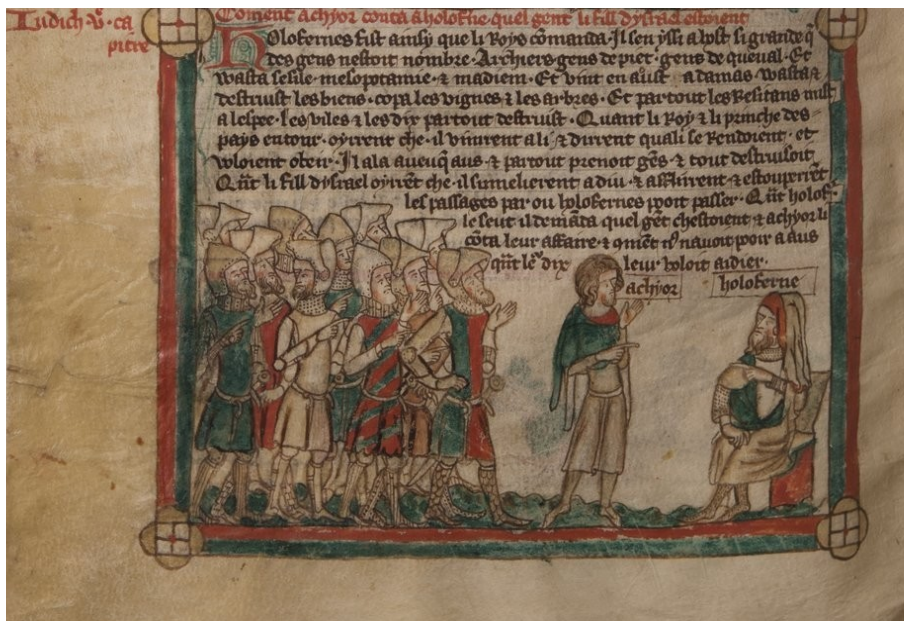 Iudich v. ca
pitre
Coment achyor conta a holofne quel gent li fill dysrael estoient
Holofernes fist ainsy que li Roys comanda. Il sen yssi a host si grande q̄
des gens nestoit nombre. Archiers gens de piet. gens de queval. Et
wasta sesile. mesopotamie. & madiem. Et vint en aust a damas wasta &
destruist les biens. copa les vignes & les arbres. Et partout les Resitans mist
a lespee. les viles & les dix partout destruist. Quant li Roy & li prinche des
pays entour. oyrent che. il vinrent a li & dirrent quali se Rendoient. et
voloient obeir. Il ala aveuq̄ aus. & partout prenoit gēs. & tout destruisoit
Qūt li fill dysrael oyrēt che. il sumelierent a diu. & & estouperrēt
les passages par ou holofernes poort passer. Qūt holof.
le seut il demāda quel gēt chestoient & achyor li
cōta leur affaire. & qmēt nꝰ navoit pooir a aus
qūt leꝰ dix leur voloit aidier.
achyor
holoferne